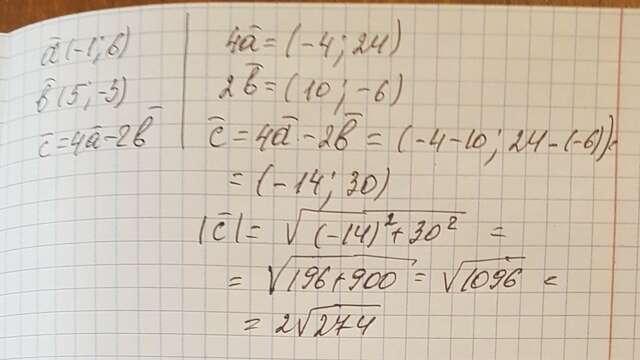 a̅(-1; 6)
b̅(5; -3)
c̅=4a̅-2b̅
4a̅=(-4; 24)
2b̅=(10; -6)
c̅=4a̅-2b̅=(-4-10; 24-(-6))=
=(-14; 30)
|c̅|=√((-14)²+30²) =
=√(196+900)=√1096 =
=2√274